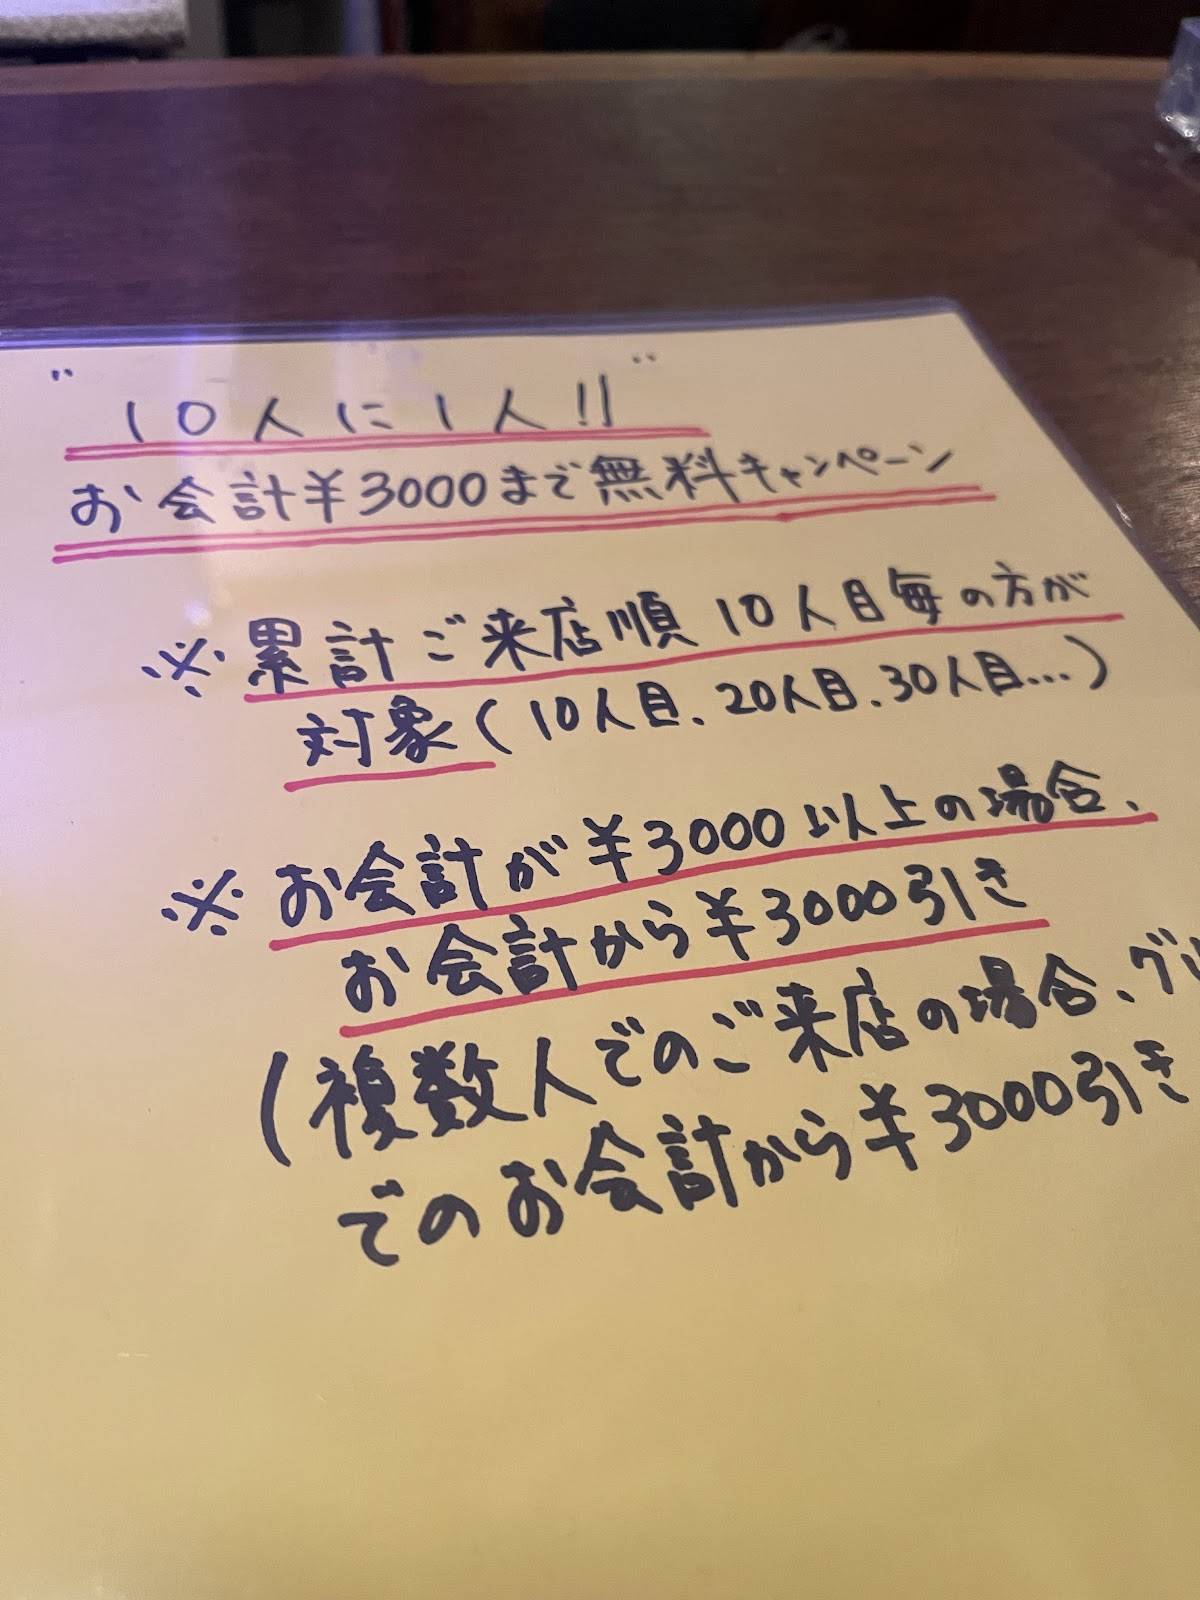 "10人に1人!!"
お会計¥3000まで無料キャンペーン
※累計ご来店順10人目毎の方が
対象(10人目、20人目、30人目…)
※お会計が¥3000以上の場合、
お会計から¥3000引き
(複数人でのご来店の場合、グ
でのお会計から¥3000引き